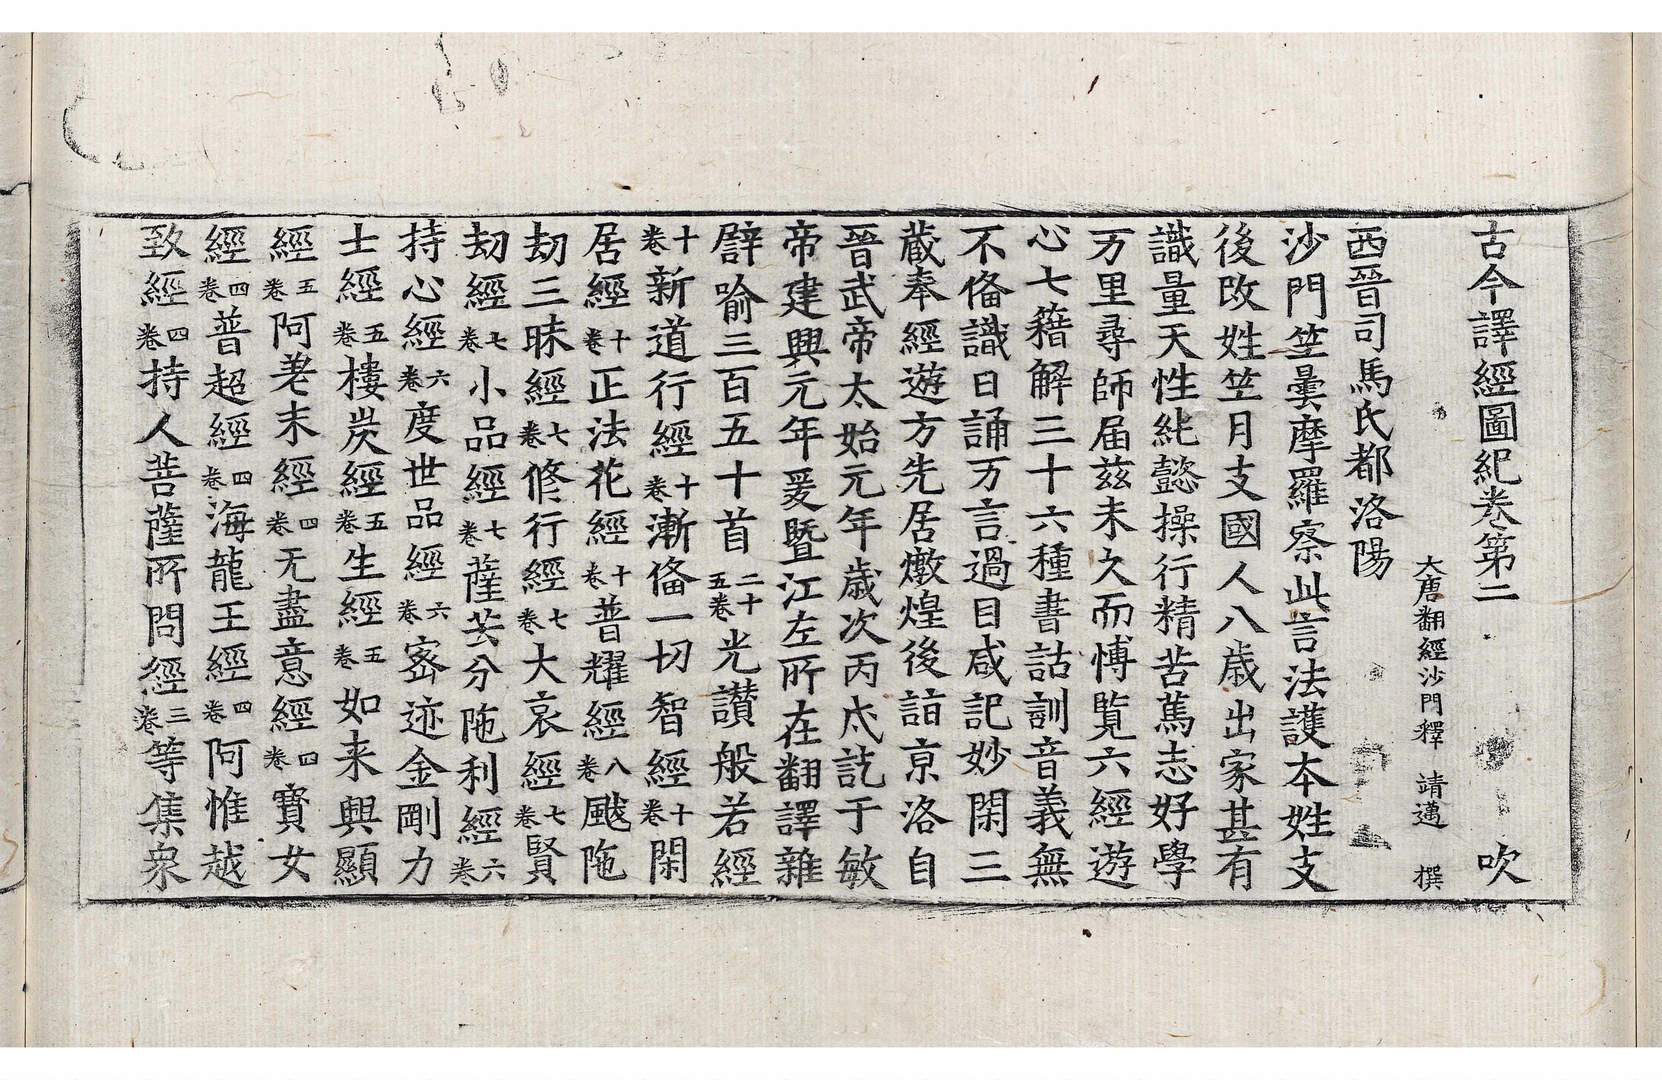 古今譯經圖紀卷第二　吹
大唐翻經沙門釋　靖邁　撰
西晉司馬氏都洛陽
沙門竺曇摩羅察此言法護本姓支
後改姓竺月支國人八歲出家甚有
識量天性純懿操行精苦篤志好學
万里尋師届茲未久而博覽六經遊
心七籍解三十六種書詁訓音義無
不俻識日誦万言過目咸記妙閑三
藏奉經遊方先居燉煌後詣京洛自
晉武帝太始元年歲次丙戌訖于敏
帝建興元年爰暨江左所在翻譯雜
譬喻三百五十首二十五卷光讚般若經
十卷新道行經十卷漸俻一切智經十卷閑
居經十卷正法花經十卷普耀經八卷颰陁
劫三昧經七卷修行經七卷大哀經七卷賢
劫經七卷小品經七卷薩芸分陁利經六卷
持心經六卷度世品經六卷宻迹金剛力
士經五卷樓炭經五卷生經五卷如来興顯
經五卷阿差末經四卷无盡意經四卷寶女
經四卷普超經四卷海龍王經四卷阿惟越
致經四卷持人菩薩所問經三卷等集衆